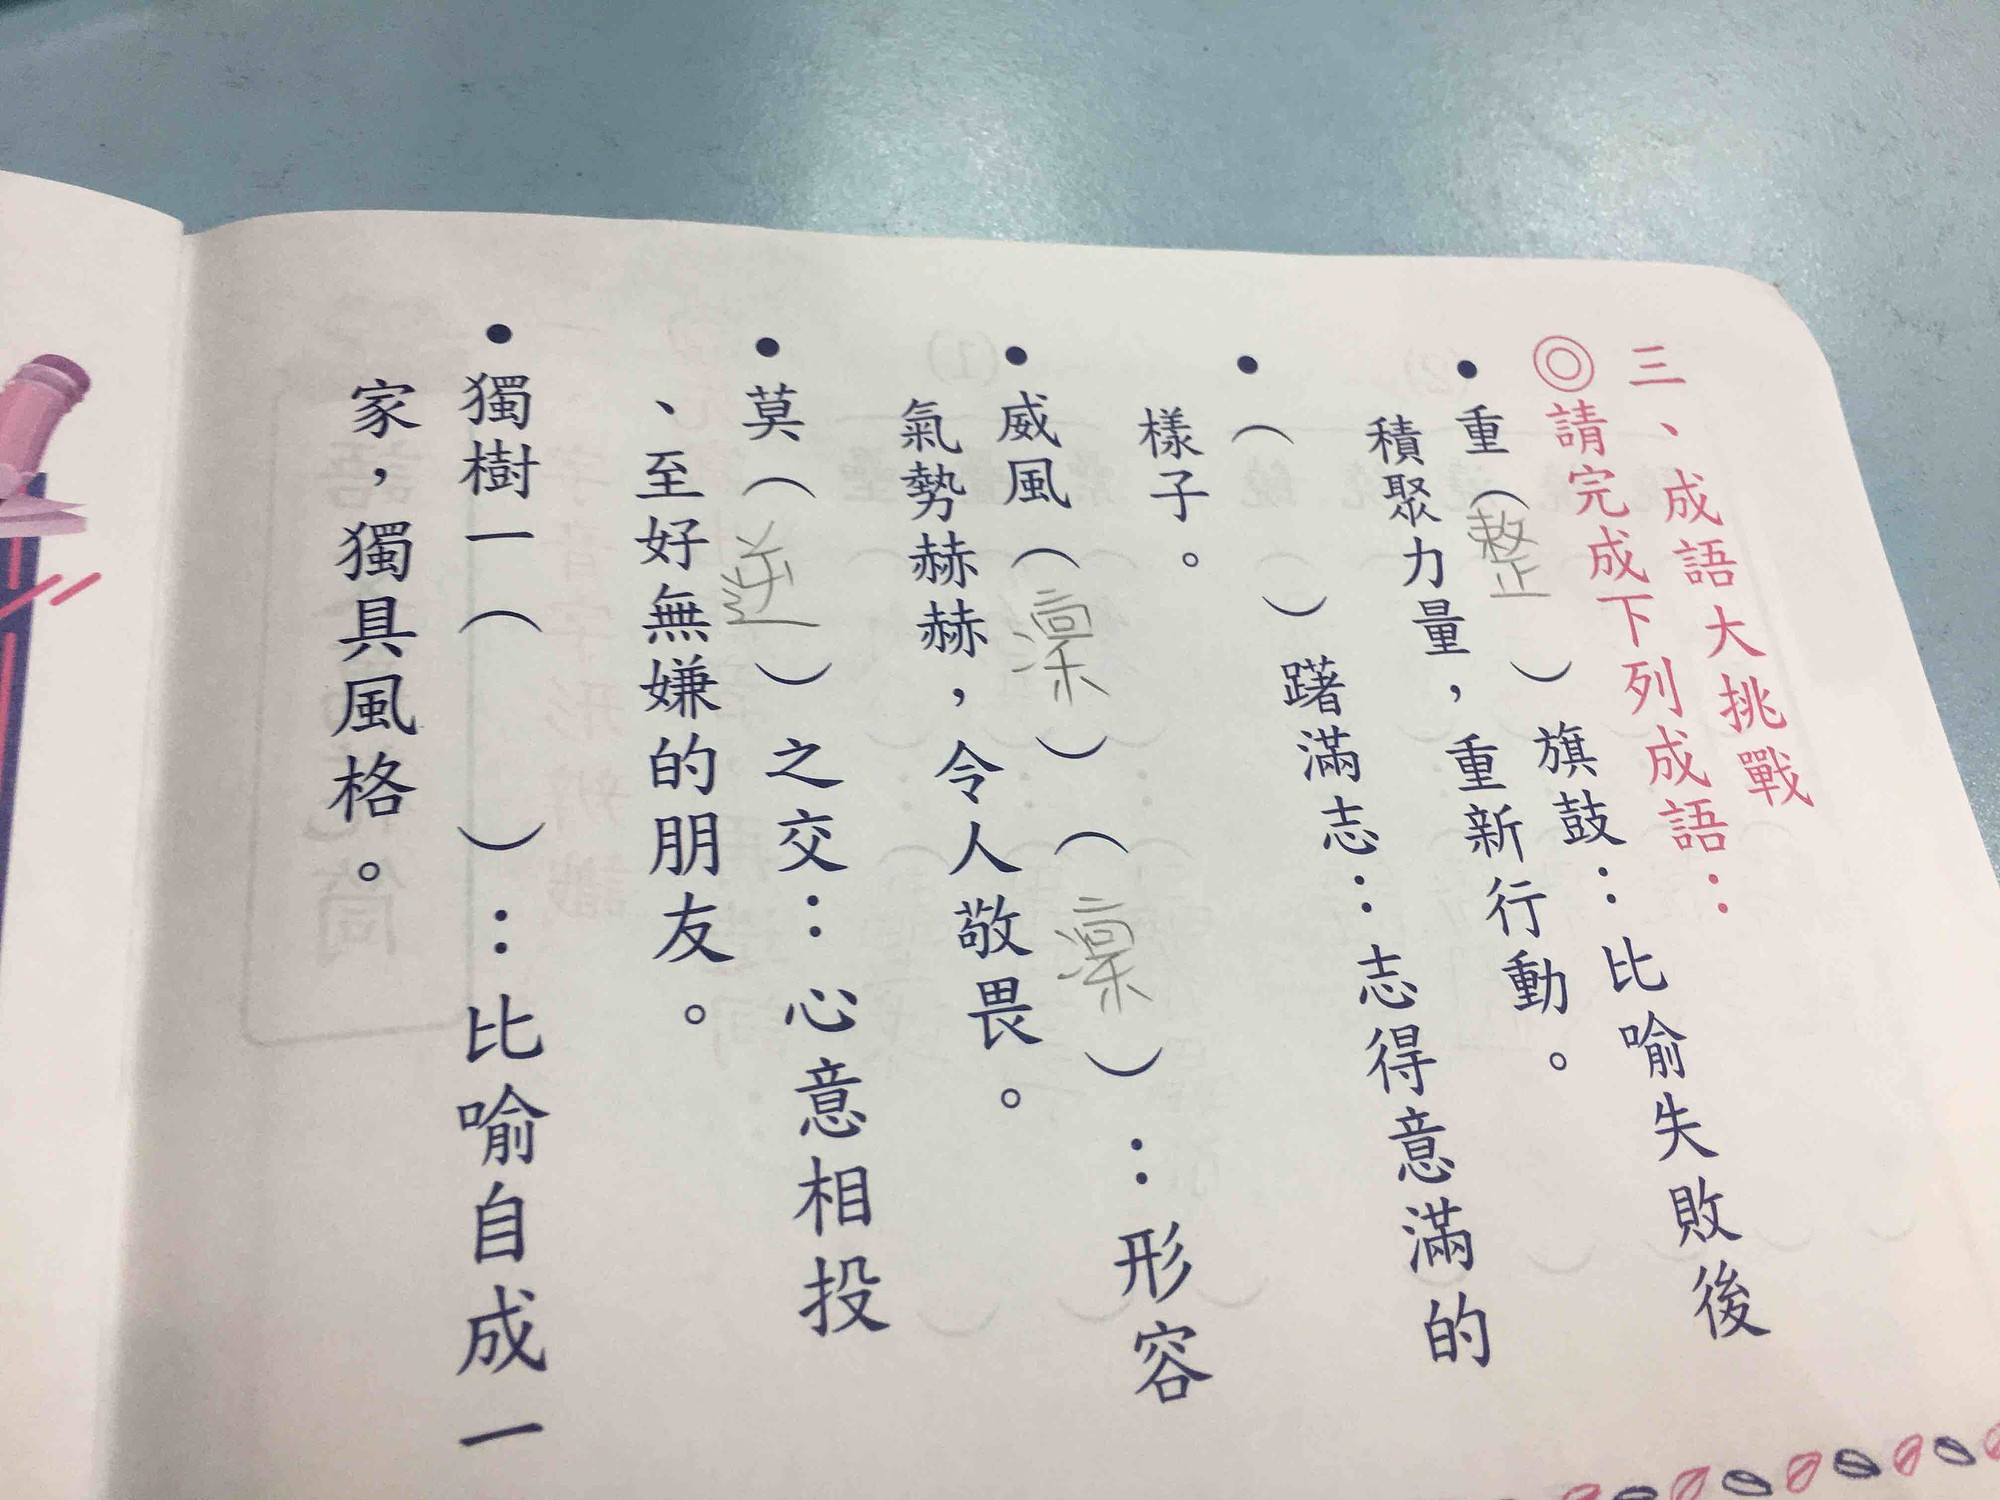 三、成語大挑戰
◎請完成下列成語：
•重（整）旗鼓：比喻失敗後
積聚力量，重新行動。
•（ ）躇滿志：志得意滿的
樣子。
•威風（凜）（凜）：形容
氣勢赫赫，令人敬畏。
•莫（逆）之交：心意相投
、至好無嫌的朋友。
•獨樹一（ ）：比喻自成一
家，獨具風格。